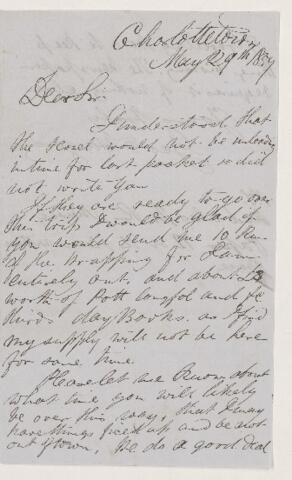 Charlottetown
May 29th /39
Dear Sir
I understood that
the vessel would not be unloaded
in time for last packet so did
not write you
If they are ready to go over
this trip I would be glad if
you would send me 10 Rms
of the Wrapping for I am
entirely out, and about
worth of Pott longfol and
thirds day Books. as I find
my supply will not be here
for some time.
Please let me know about
what time you will likely
be over this way, that I may
have things fixed up and be not
out of town, We do a good deal